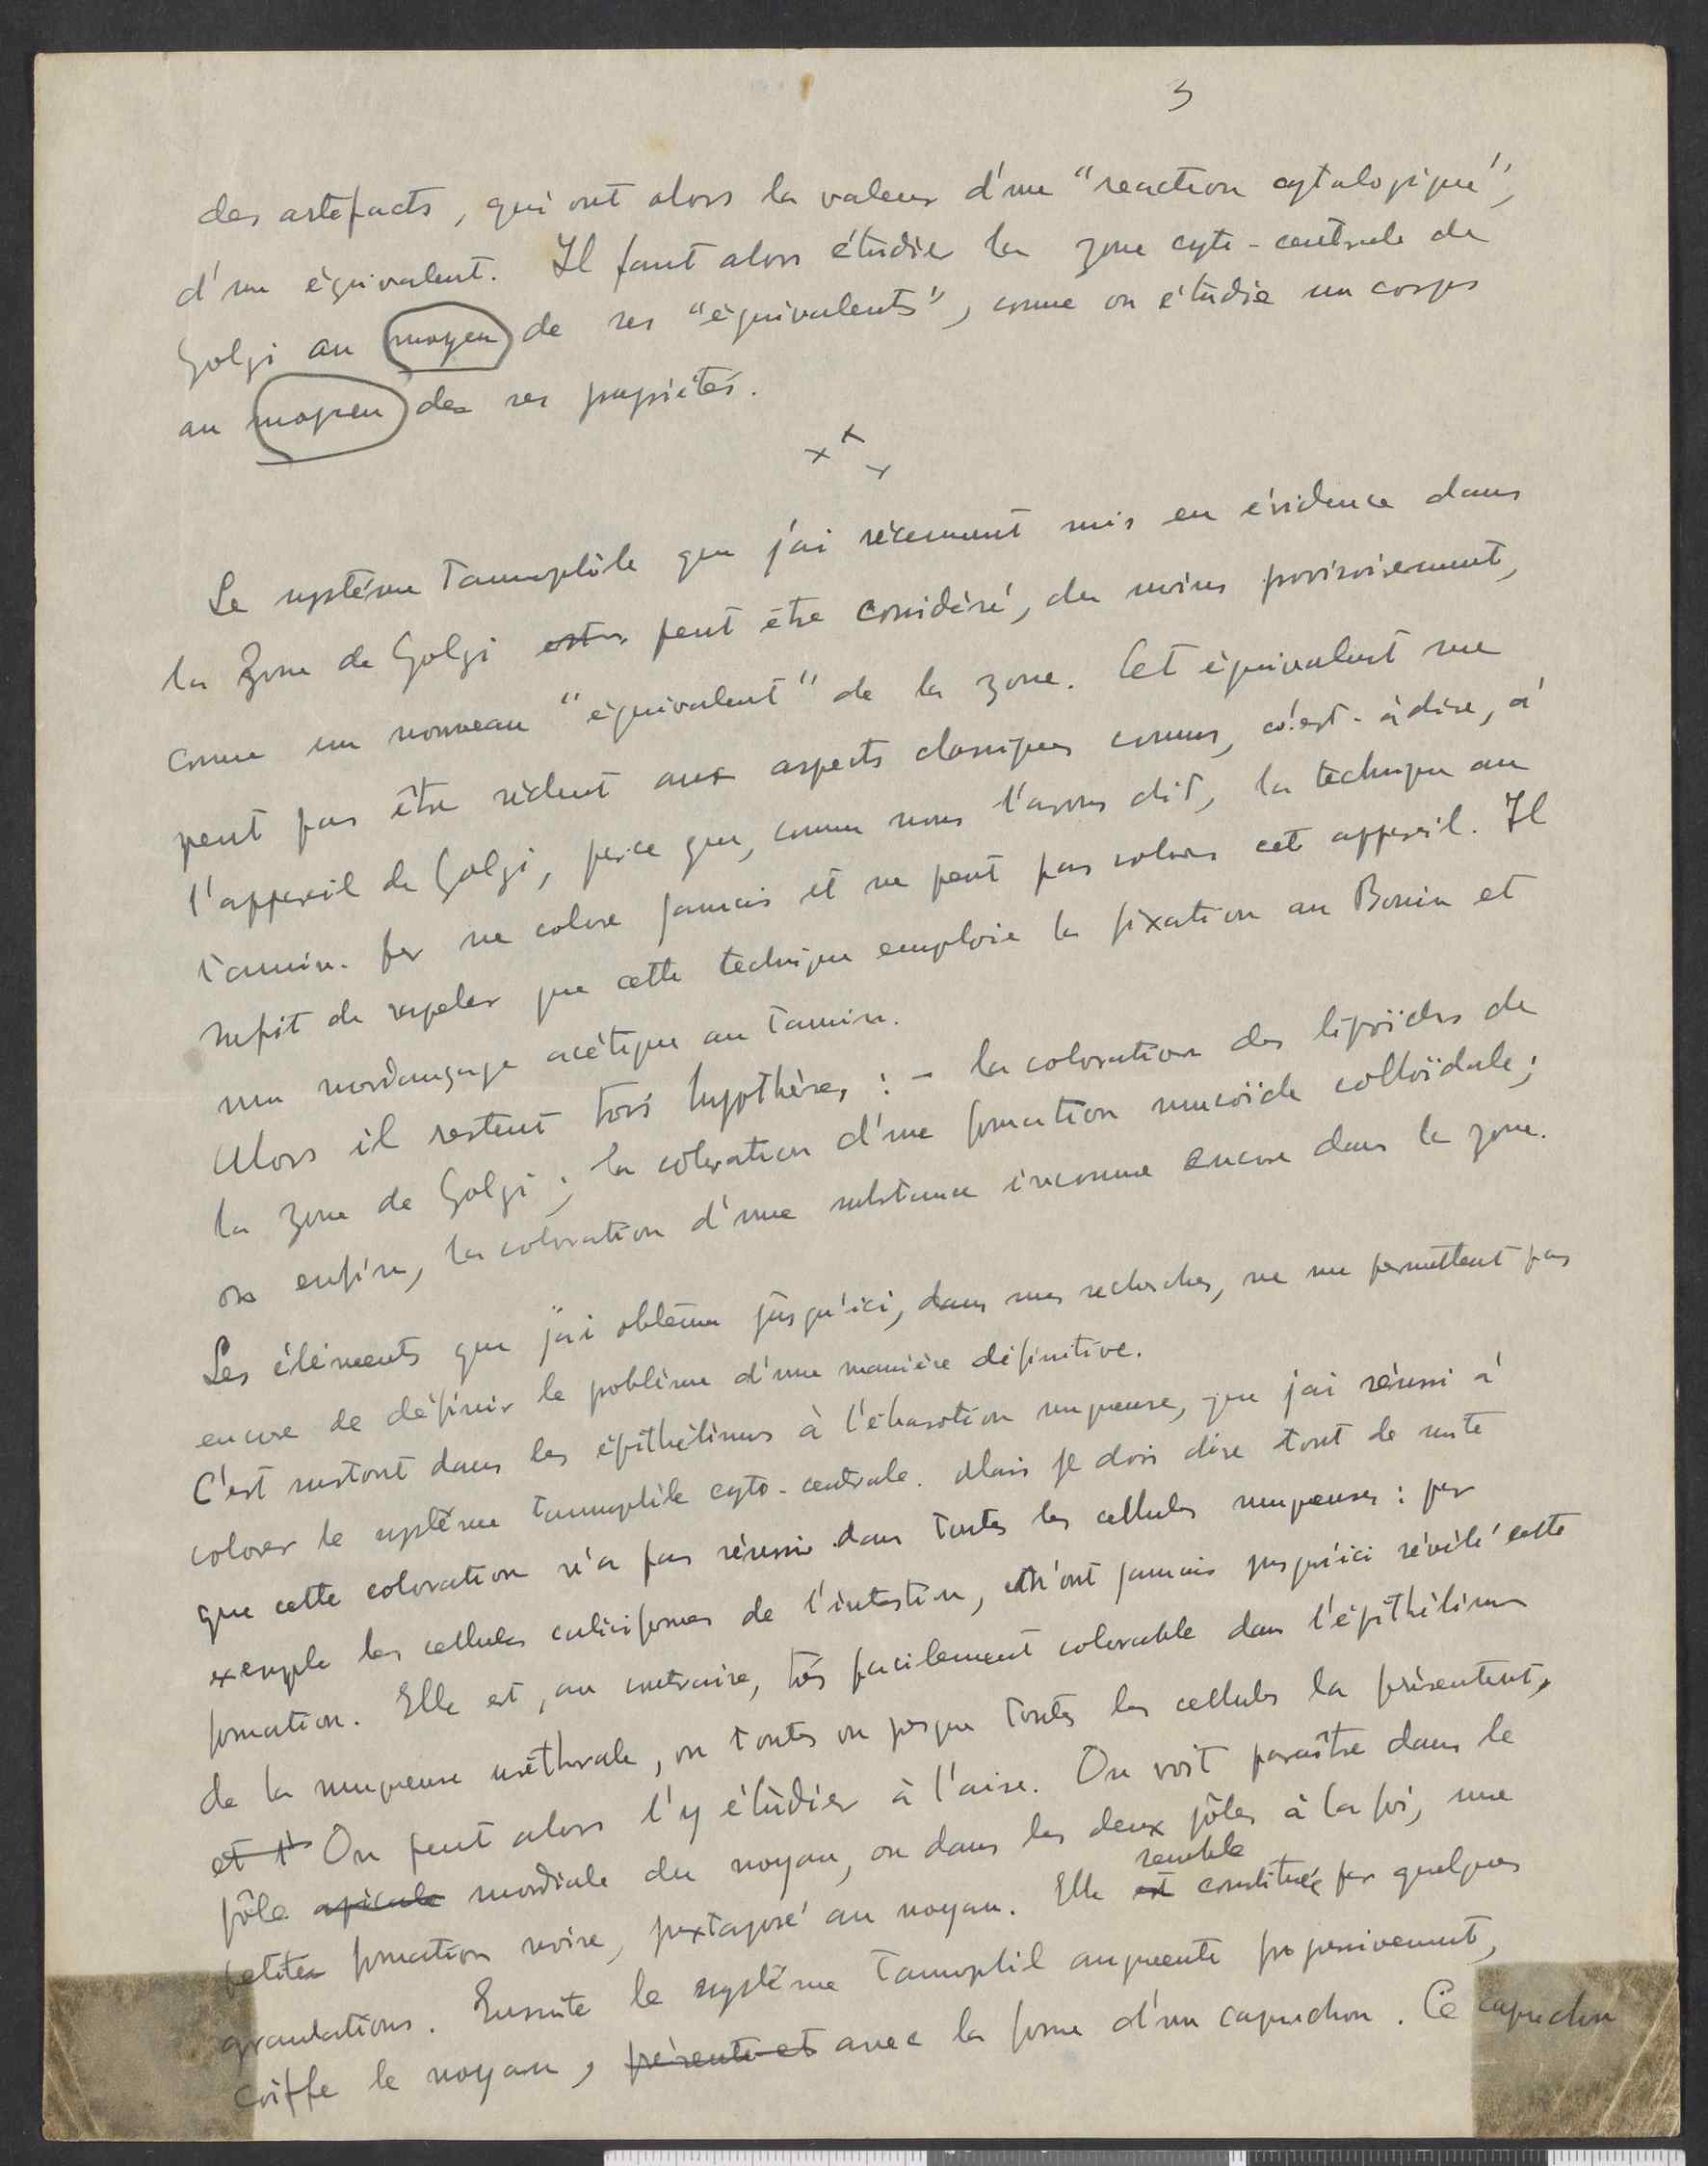 3
des artefacts, qui ont alors la valeur d'une "reaction cytologique",
d'un équivalent. Il faut alors étudier la zone cyto-centrale de
Golgi au moyen de ses "équivalents", come on étudie un corps
au moyen des ses propriétés.
x x x
Le système tannophile que j'ai récemment mis en évidence dans
la Zone de Golgi est peut être considéré, du moins provisoirement,
come un nouveau "équivalent" de la zone. Cet équivalent ne
peut pas être réduit aux aspects classiques connus, c'est-à dire, à
l'appareil de Golgi, parce que, comme nous l'avons dit, la technique au
tannin-fer ne colore jamais et ne peut pas colorer cet appareil. Il
sufit de rapeler que cette technique emploie la fixation au Bouin et
un mordançage acétique au tannin.
Alors il restent trois hypothèses: - la coloration des lipoïdes de
la zone de Golgi; la coloration d'une formation mucoïde colloïdale;
ou enfin, la coloration d'une substance inconnue encore dans la zone.
Les éléments que j'ai obtenu jusqu'ici, dans mes recherches, ne me permettent pas
encore de définir le problème d'une manière définitive.
C'est surtout dans les épithéliums à l'élaboration muqueuse, que j'ai réussi à
colorer le système tannophile cyto-centrale. Mais je dois dire tout de suite
que cette coloration n'a pas réussie dans toutes les cellules muqueuses: par
exemple les cellules caliciformes de l'intestin, n'ont jamais jusqu'ici révélé cette
formation. Elle est, au contraire, très facilement colorable dans l'épithélium
de la muqueuse uréthrale, ou toutes ou presque toutes les cellules la présentent.
et l' On peut alors l'y étudier à l'aise. On voit paraître dans le
pôle apicale mondiale du noyau, ou dans les deux pôles à la foi, une
semble
petite formation noire, juxtaposé au noyau. Elle est constituée par quelques
granulations. Ensuite le système tannophil augmente progressivement,
coiffe le noyau, présente et avec la forme d'un capuchon. Ce capuchon